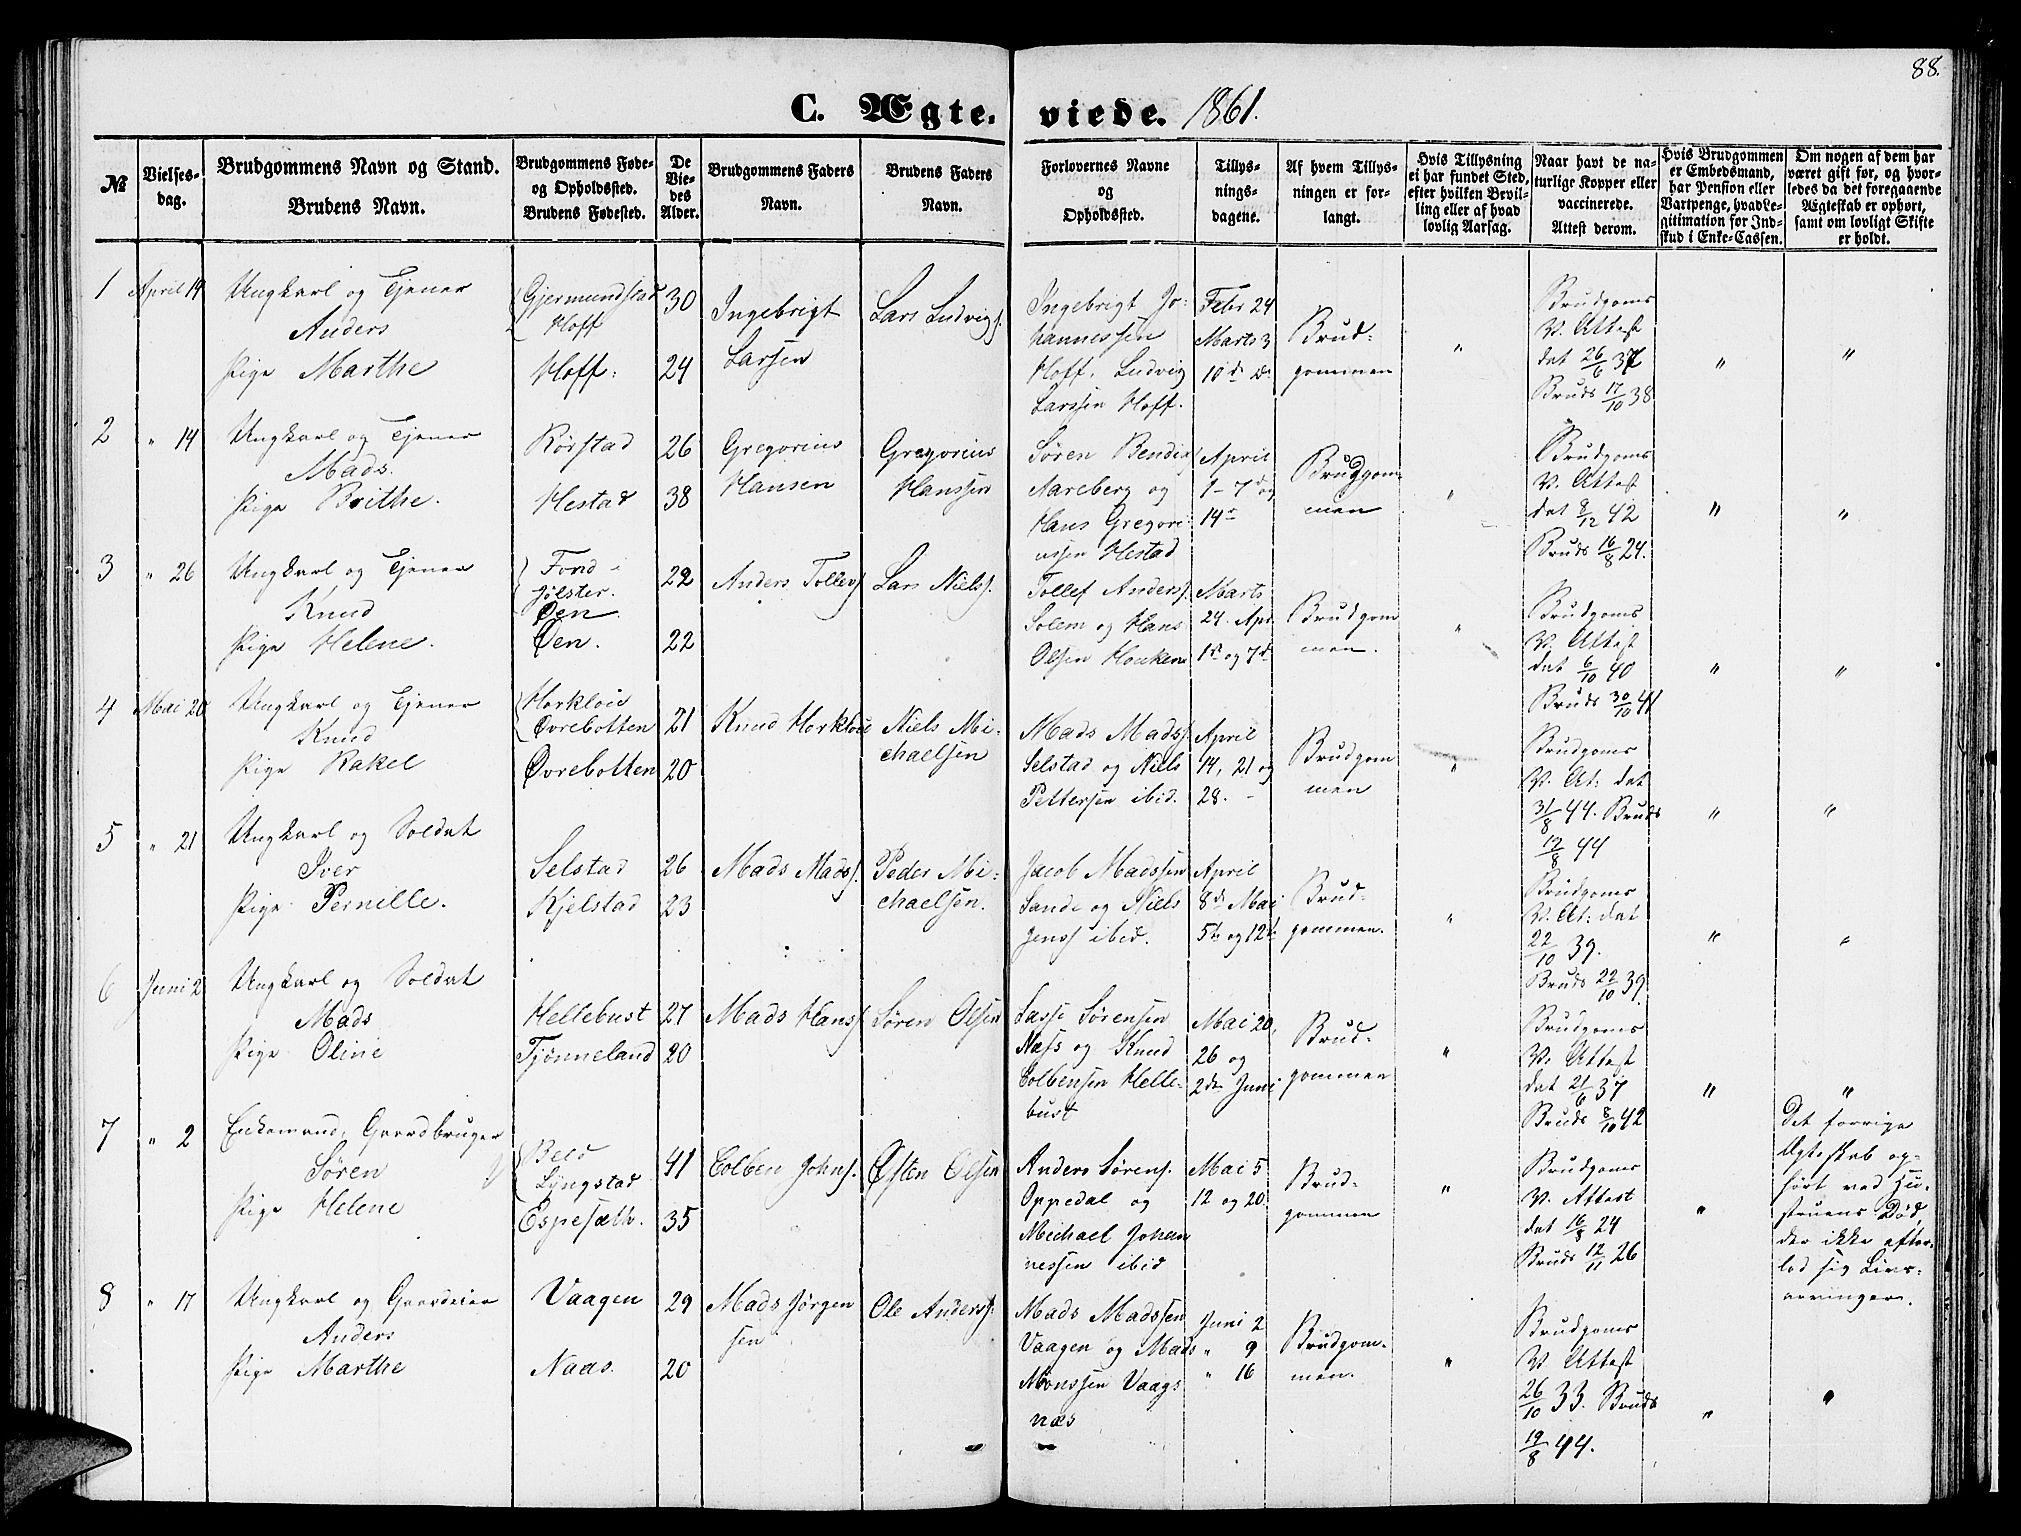 88.
C. Ægte. viede. 1861.
№
Vielses-
dag.
Brudgommens Navn og Stand.
Brudens Navn.
Brudgommens Føde-
og Opholdssted.
Brudens Fødested.
De
Vie-
des
Alder.
Brudgommens Faders
Navn.
Brudens Faders
Navn.
Forlovernes Navne
og
Opholdssted.
Tillys-
nings-
dagene.
Af hvem Tillys-
ningen er for-
langt.
Hvis Tillysning
ei har fundet Sted,
efter hvilken Bevil-
ling eller af hvad
lovlig Aarsag.
Naar havt de na-
turlige Kopper eller
vaccinerede.
Attest derom.
Hvis Brudgommen
er Embedsmand,
har Pension eller
Vartpenge, hvad Le-
gitimation for Ind-
skud i Enke-Cassen.
Om nogen af dem har
været gift før, og hvor-
ledes da det foregaaende
Ægteskab er ophørt,
samt om lovligt Skifte
er holdt.
1
April 14
Ungkarl og Tjener
Anders
Pige Marthe
Gjermundstad
Hoff
Hoff.
30
24
Ingebrigt
Larsen
Lars Ludvigs.
Ingebrigt Jo-
hannessen
Hoff, Ludvig
Larssen Hoff.
Febr 24
Marts 3
10de
Brud-
gommen
"
Brudgoms
V. Attest
dat 26/6 37
Bruds 17/10 38
"
"
2
" 14
Ungkarl og Tjener
Mads.
Pige Brithe.
Rørstad
Hestad
26
38
Gregorius
Hansen
Gregorius
Hanssen
Søren Bendix
Aareberg og
Hans Gregori-
ussen Hestad
April
1 - 7de og
14de
Brudgom-
men
"
Brudgoms
V. Attest
dat 8/12 42
Bruds 16/8 24.
"
"
3
" 26
Ungkarl og Tjener
Knud
Pige Helene.
Fond -
Jølster.
Øen
Øen.
22
22
Anders Tollevs
Lars Niels.
Tollef Anders.
Solem og Hans
Olsen Houkene
Marts
24. Apr.
1ste og 7de
Brudgom
men.
"
Brudgoms
V. Attest
dat 6/10 40
Bruds 30/10 41
"
"
4
Mai 20
Ungkarl og Tjener
Knud
Pige Rakel
Horkløie
Øvrebotten
Øvrebotten
21
20
Knud Horkløie
Niels Mi-
chaelsen
Mads Mads.
Selstad og Niels
Pettersen ibid.
April
14, 21 og
28. -
Brudgom
men
"
Brudgoms
V. At: dat
31/8 44. Bruds
12/8 44
"
"
5
" 21
Ungkarl og Soldat
Iver
Pige Pernille.
Selstad
Kjelstad
26
23
Mads Mads.
Peder Mi-
chaelsen.
Jacob Madssen
Sande og Niels
Jens. ibid.
April
8de Mai
5te og 12te
Brud-
gommen.
"
Brudgoms
V. At: dat
22/10 39.
Bruds 22/10 39.
"
"
6
Juni 2
Ungkarl og Soldat
Mads
Pige Oline
Hellebust
Tjønneland
27
20
Mads Hans.
Søren Olsen
Lasse Sørensen
Næss og Knud
Colbensen Helle-
bust
Mai 20,
26 og
2den Juni
Brud-
gommen
"
Brudgoms
V. Attest
dat 21/6 37
Bruds 8/10 42
"
"
7
" 2
Enkemand, Gaardbruger
Søren
Pige Helene
Beld
Lyngstad
Espesæth.
41
35
Colben Johns.
Østen Olsen
Anders Sørens.
Oppedal og
Michael Johan
nessen ibid
Mai 5
12 og 20.
Brud-
gommen
"
Brudgoms
V. Attest
dat 16/8 24
Bruds 12/11 26
"
Det forrige
Ægteskab op-
hørt ved Hu-
struens Død,
der ikke efter-
lod sig Livs-
arvinger.
8
" 17
Ungkarl og Gaardeier
Anders
Pige Marthe
Vaagen
Naas.
29
20
Mads Jørgen
sen
Ole Anders.
Mads Madssen
Vaagen og Mads
Monssen Vaags
næs
Juni 2
" 9
" 16
Brudgom-
men.
"
Brudgoms
V. Attest
26/10 33. Bruds
19/8 44.
"
"